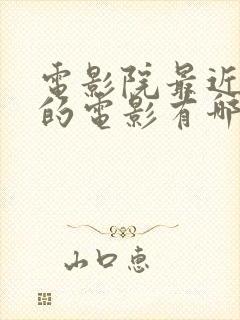 電影院最近
的電影有哪
山口惠